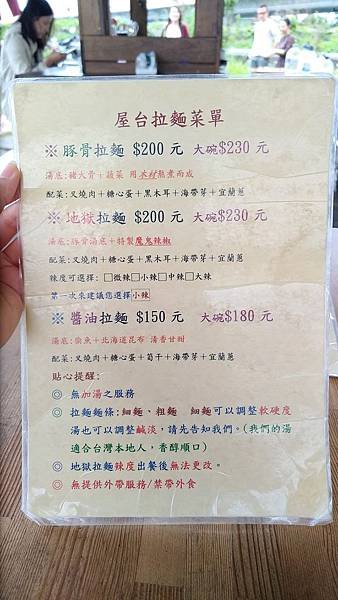 屋台拉麵菜單
※ 豚骨拉麵 $200 元 大碗$230 元
湯底:豬大骨+蔬菜 用木材熬煮而成
配菜:叉燒肉+糖心蛋+黑木耳+海帶芽+宜蘭蔥
※ 地獄拉麵 $200 元 大碗$230 元
湯底:豚骨湯底+特製魔鬼辣椒
配菜:叉燒肉+糖心蛋+黑木耳+海帶芽+宜蘭蔥
辣度可選擇:□微辣□小辣□中辣□大辣
第一次來建議您選擇小辣
※ 醬油拉麵 $150 元 大碗$180 元
湯底:柴魚+北海道昆布 清香甘甜
配菜:叉燒肉+糖心蛋+筍干+海帶芽+宜蘭蔥
貼心提醒:
◎ 無加湯之服務
◎ 拉麵麵條:細麵、粗麵 細麵可以調整軟硬度
湯也可以調整鹹淡,請先告知我們。(我們的湯
適合台灣本地人,香醇順口)
◎ 地獄拉麵辣度出餐後無法更改。
◎ 無提供外帶服務/禁帶外食